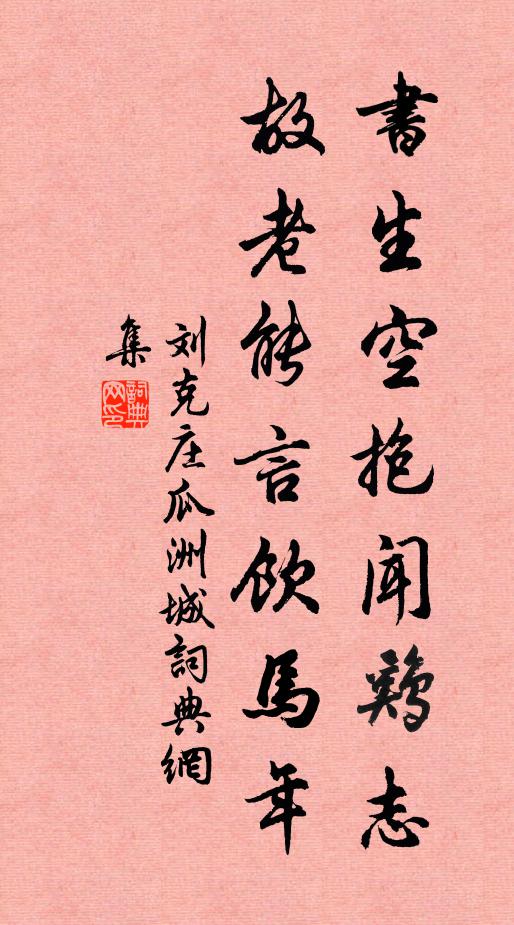 書生空抱聞鶏志
故老能言飲馬年
刘克庄瓜洲城詞典網
集
詞典網印